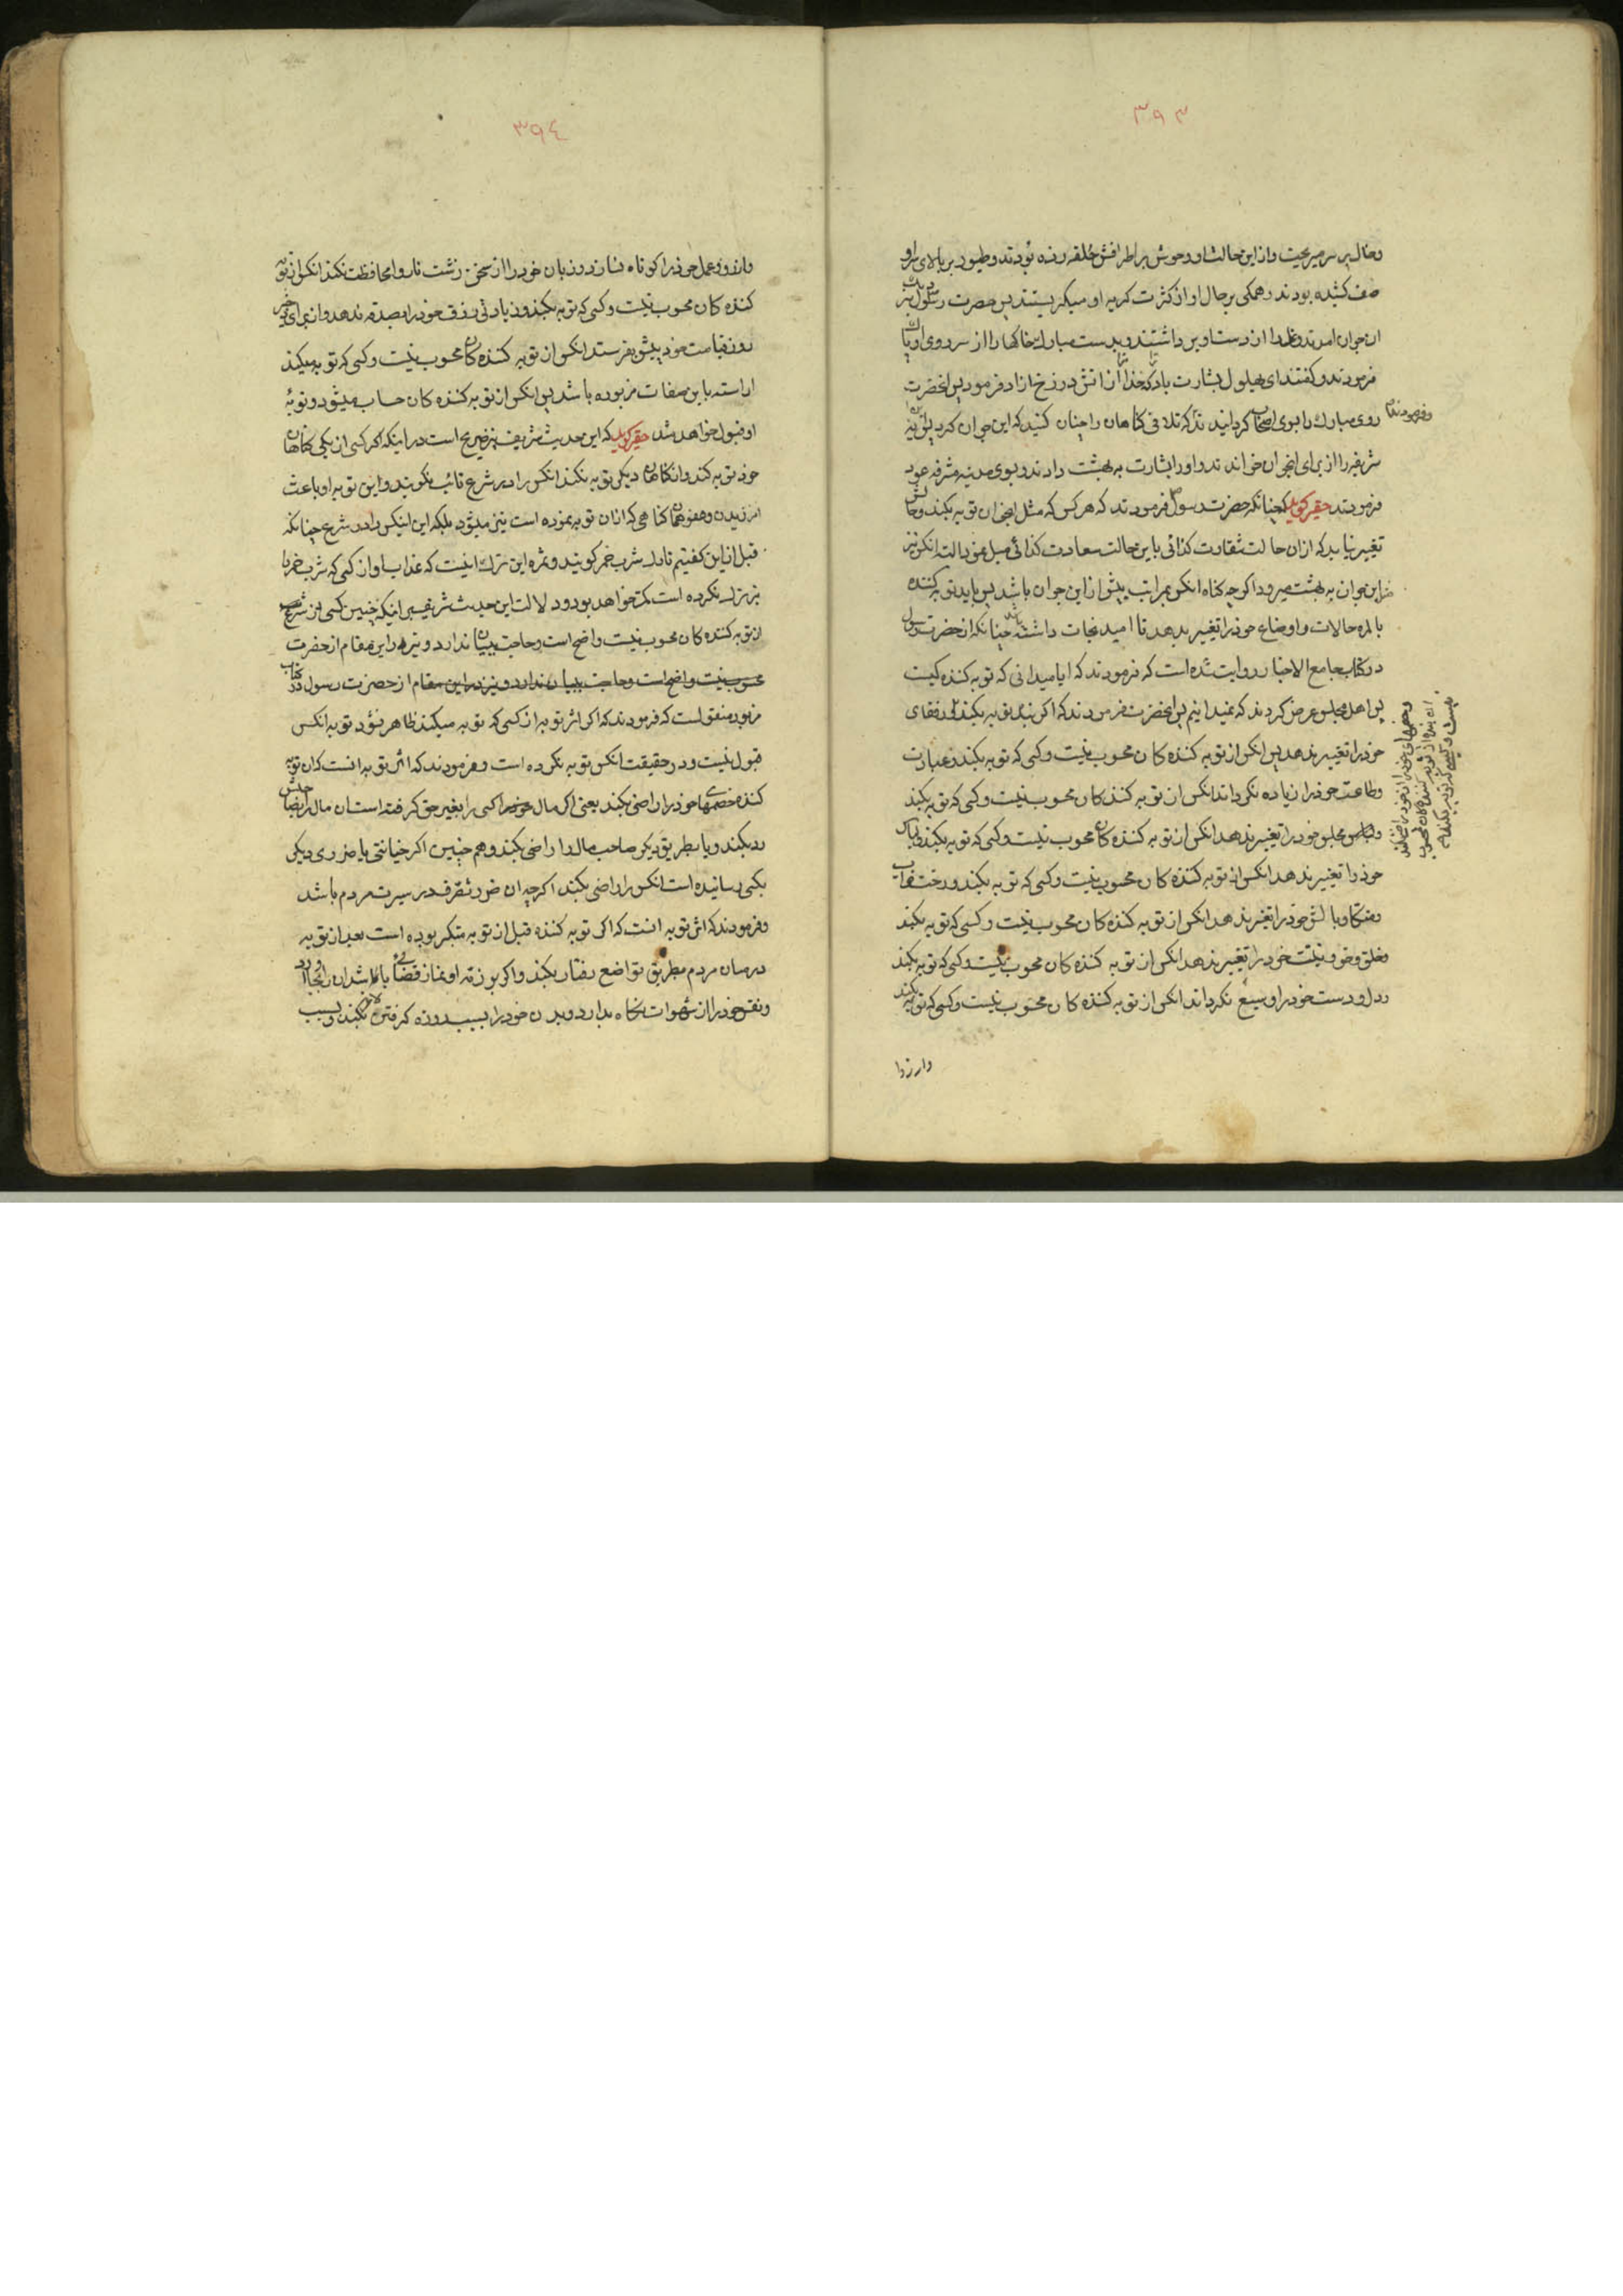 ۳۹۳
وخاک بر سر میریخت و از این حالت او وحوش بر اطرافش حلقه زده بودند و طیور بر بالای سر او
صف کشیده بودند و همگی بر حال او از کثرت گریه او میگریستند پس حضرت رسول نزد
ان جوان امدند و غل را از دست او بر داشتند و بدست مبارک خاکها را از سر و روی او پاک
فرمودند و گفتند ای بهلول بشارت باد که خدا ترا از اتش دوزخ ازاد فرمود پس انحضرت
روی مبارک را بسوی اصحاب گردانیدند که تلافی گناهان را چنان کنید که این جوان کرد پس ایه
وفرمودند
شریفه را از برای انجوان خواندند و او را بشارت به بهشت دادند و بسوی مدینه مشرفه عود
فرمودند حقیر گوید که چنانکه حضرت رسول فرمودند که هر کس که مثل انجوان توبه بکند و حالش
تغییر نیابد که از ان حالت شقاوت کذائی باین حالت سعادت کذائی مبدل نمود البته انکس نیز
مثل این جوان به بهشت میرود اگرچه گناه انکس بمراتب بیش از این جوان باشد پس باید توبه کننده
بالمره حالات و اوضاع خود را تغییر بدهد تا امید نجات داشته باشد چنانکه از حضرت رسول
در کتاب جامع الاخبار روایت شده است که فرمودند که ایا میدانی که توبه کننده کیست
پس اهل مجلس عرض کردند که نمیدانیم پس انحضرت فرمودند که اگر بنده توبه بکند و رفقای
خود را تغییر ندهد پس انکس از توبه کننده کان محسوب نیست و کسی که توبه بکند و عبادت
وطاعت خود را زیاده نگرداند انکس از توبه کننده کان محسوب نیست و کسی که توبه بکند
و مجلس خود را تغییر ندهد انکس از توبه کننده کان محسوب نیست و کسی که توبه بکند و لباس
خود را تغییر ندهد انکس از توبه کننده کان محسوب نیست و کسی که توبه بکند و رخت خواب
و متکا و بالش خود را تغییر ندهد انکس از توبه کننده کان محسوب نیست و کسی که توبه بکند
وخلق و خو و نیت خود را تغییر ندهد انکس از توبه کننده کان محسوب نیست و کسی که توبه بکند
و دل و دست خود را وسیع نگرداند انکس از توبه کننده کان محسوب نیست و کسی که توبه بکند
وارزوا
وخصمهای خود را از خود راضی نکند
از توبه کننده کان محسوب
نیست و کسیکه توبه بکند
۳۹٤
وارزو و عمل خود را کوتاه نسازد و زبان خود را از سخن زشت ناروا محافظت نکند انکس از توبه
کننده کان محسوب نیست و کسی که توبه بکند و زیادتی رزق خود را بصدقه ندهد و از برای
روز قیامت خود پیش نفرستد انکس از توبه کننده کان محسوب نیست و کسی که توبه میکند
اراسته باین صفات مزبوره باشد پس انکس از توبه کننده کان حساب میشود و توبهٔ
او قبول خواهد شد حقیر گوید که این حدیث شریف نیز صریح است در اینکه اگر کسی از یکی گناهان
خود توبه کند و از گناهان دیگر توبه نکند انکس را در شرع تائب نگویند و این توبه او باعث
امرزیدن و عفو همان گناهی که از ان توبه نموده است نیز میشود بلکه این اینکس را در شرع چنانکه
قبل از این گفتیم تارک شرب خمر گویند و ثمره این ترک اینست که عذاب او از کسی که شرب خمر را
نیز ترک نکرده است کمتر خواهد بود و دلالت این حدیث شریف بر اینکه چنین کسی از شرع
از توبه کننده کان محسوب نیست واضح است و حاجت ببیان ندارد و نیز در این مقام از حضرت
محسوب نیست واضح است و حاجت ببیان ندارد و نیز در این مقام از حضرت رسول در کتاب
مزبور منقول است که فرمودند که اگر اثر توبه از کسی که توبه میکند ظاهر نشود توبه انکس
قبول نیست و در حقیقت انکس توبه نکرده است و فرمودند که اثر توبه انست که ان توبه
کننده خصمهای خود را راضی بکند یعنی اگر مال کسی را بغیر حق گرفته است ان مال را بصاحبش
رد بکند و یا بطریق دیگر صاحب مال را راضی بکند و هم چنین اگر خیانتی یا ضرری دیگر
بکسی رسانیده است انکس را راضی بکند اگرچه ان ضرر تصرف در سیرت مردم باشد
وفرمودند که اثر توبه انست که اگر توبه کننده قبل از توبه متکبر بوده است بعد از توبه
در میان مردم بطریق تواضع رفتار بکند و اگر بر ذمه او نماز قضائی باشد ان را بجا اورد
ونفس خود را از شهوات نگاه بدارد و بدن خود را بسبب روزه گرفتن لاغر بکند و بسبب